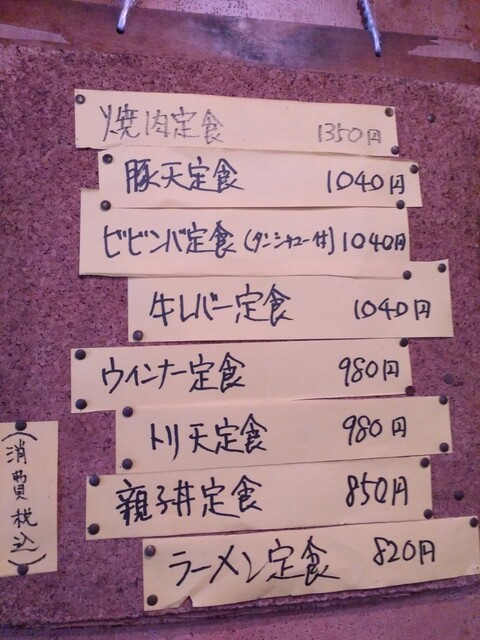 焼肉定食 1350円
豚天定食 1040円
ビビンバ定食(タンシチュー付) 1040円
牛レバー定食 1040円
ウィンナー定食 980円
トリ天定食 980円
親子丼定食 850円
ラーメン定食 820円
(消費税込)